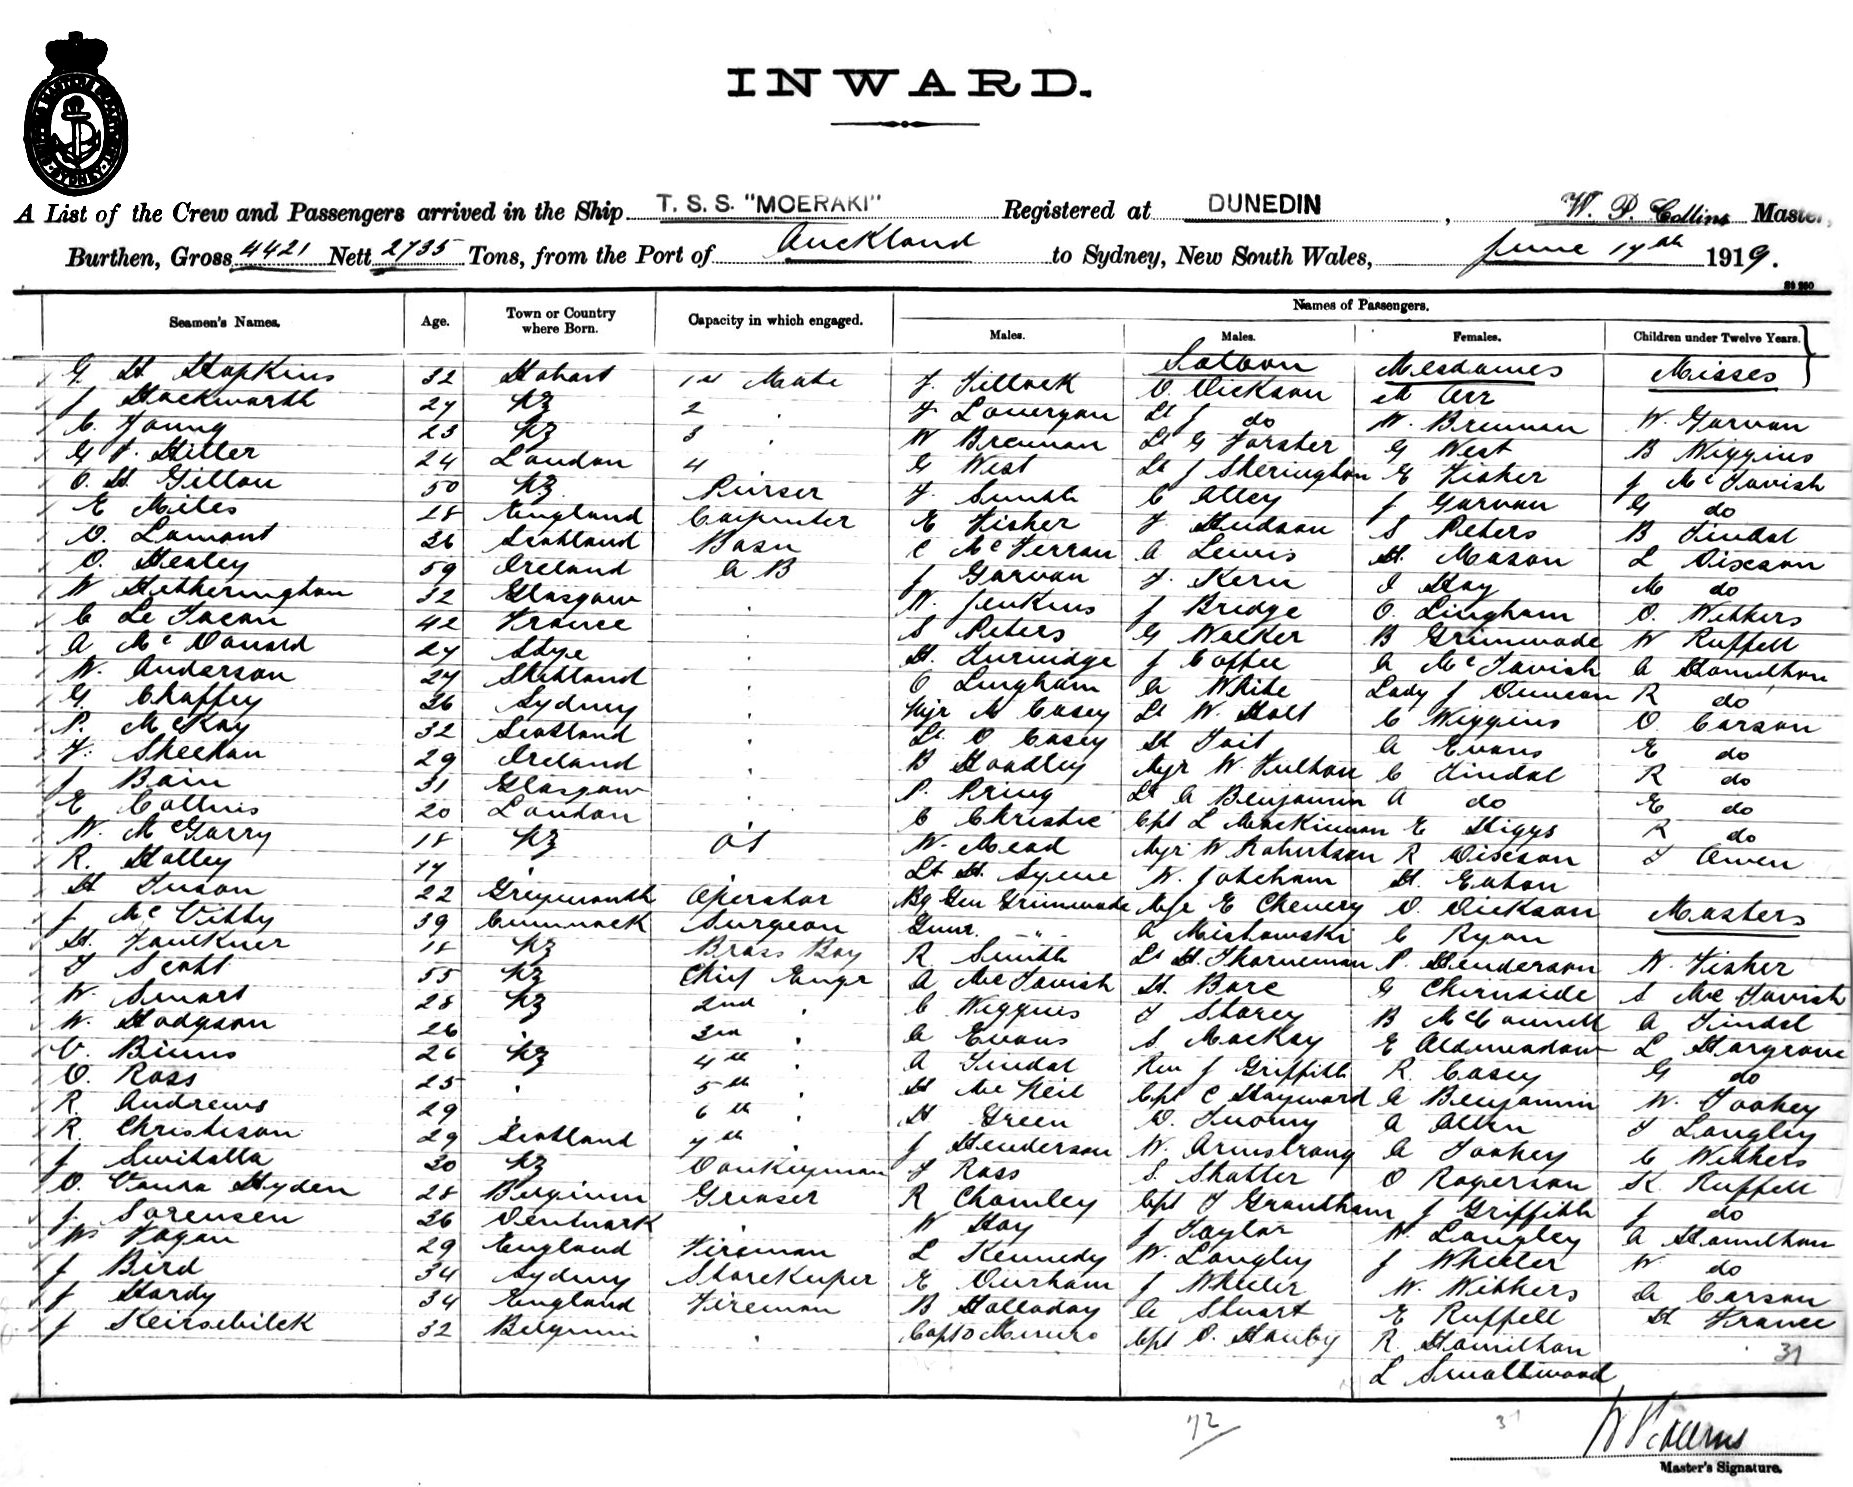 INWARD.
A List of the Crew and Passengers arrived in the Ship T. S. S. "MOERAKI" Registered at DUNEDIN, W. P. Collins Master,
Burthen, Gross 4421 Nett 2735 Tons, from the Port of Auckland to Sydney, New South Wales, June 17th 1919.
Names of Passengers.
Seamen's Names. Age. Town or Country where Born. Capacity in which engaged. Males. Males. Females. Children under Twelve Years.
Saloon Mesdames Misses
G H Hopkins 32 Hobart 1st Mate J. Tillock O Dickson M Orr
J Duckworth 27 NZ 2 " F Lonergan Lt J do W. Brennan W. Garvan
C. Young 23 NZ 3 " W Brennan Lt G Forster G West B Wiggins
G F Hiller 24 London 4 G West Lt J Sheringham E Fisher J McTavish
O. H. Gillon 50 NZ Purser F. Smith C Alley J Garvan G do
E Miles 28 England Carpenter E Fisher F Hudson S Peters B Tindal
D. Lamont 26 Scotland Bosn C McFerran A Lewis H. Mason L Dixson
D. Healey 59 Ireland A B J Garvan F. Kern I Hay M do
W Hetherington 32 Glasgow " W. Jenkins J Bridge O. Lingham O. Withers
C Le Facan 42 France " S Peters G Walker B Grimwade W Ruffell
A McDonard 27 Skye " H. Turnidge J Coffee A McTavish A Hamilton
W. Anderson 27 Shetland " O Lingham A White Lady J Duncan R do
G. Chaffey 26 Sydney " Mjr M Casey Lt W. Holt C Wiggins D Carson
P. McKay 32 Scotland " Lt D Casey H Tait A Evans E do
F. Sheehan 29 Ireland " B Hoadley Mjr W. Fulton C Tindal R do
J Bain 31 Glasgow " P. Pring Lt A Benjamin A do E do
E Collins 20 London " C Christie Cpt L MacKinnon E Higgs R do
W. McGarry 18 NZ O S W. Mead Mjr W Robertson R Dixson F Owen
R. Halley 17 " Lt H. Syme N. Jotcham H. Eaton
H Tuson 22 Greymouth Operator Bg Gen Grimwade Mjr E Chenery D. Dickson Masters
J McVitty 39 Cumnock Surgeon Gunr. " A Mishowski C Ryan
H. Faulkner 18 NZ Brass Boy R Smith Lt H. Thorneman P. Henderson W. Fisher
J Scott 55 NZ Chief Engr A McTavish H. Bore G Chernside S McTavish
W. Smart 28 NZ 2nd " C Wiggins F Storey B McConnell A Tindal
W. Hodgson 26 " 3rd " A Evans S Mackay E Aldmeadow L Hargrave
V. Binns 26 NZ 4th " A Tindal Rev J Griffith R. Casey G do
D. Ross 25 " 5th " H McNeil Cpt C Hayward A Benjamin W. Toohey
R. Andrews 29 " 6th " H Green D. Twomy A Allen F Langley
R. Christison 29 Scotland 7th " J Henderson W. Armstrong A Toohey C Withers
J Switalla 30 NZ Donkeyman F Ross S. Shatter O Rogerson K Ruffell
O. Vanra Hyden 28 Belgium Greaser R Chomley Cpt F Grantham J Griffith J do
J. Sorensen 36 Denmark " W Hay J Taylor W. Langley A Hamilton
Ws Fagan 29 England Fireman L Kennedy W. Langley J Wheeler W do
J Bird 34 Sydney Storekeeper E Durham J Wheeler W. Withers A Carson
J Hardy 34 England Fireman B Holloday A Stuart E Ruffell H France
J Keirsebilck 32 Belgium " Capt D Munro Cpt O. Hanby R Hamilton
31
L Smallwood
72 31
W P Collins
Master's Signature.